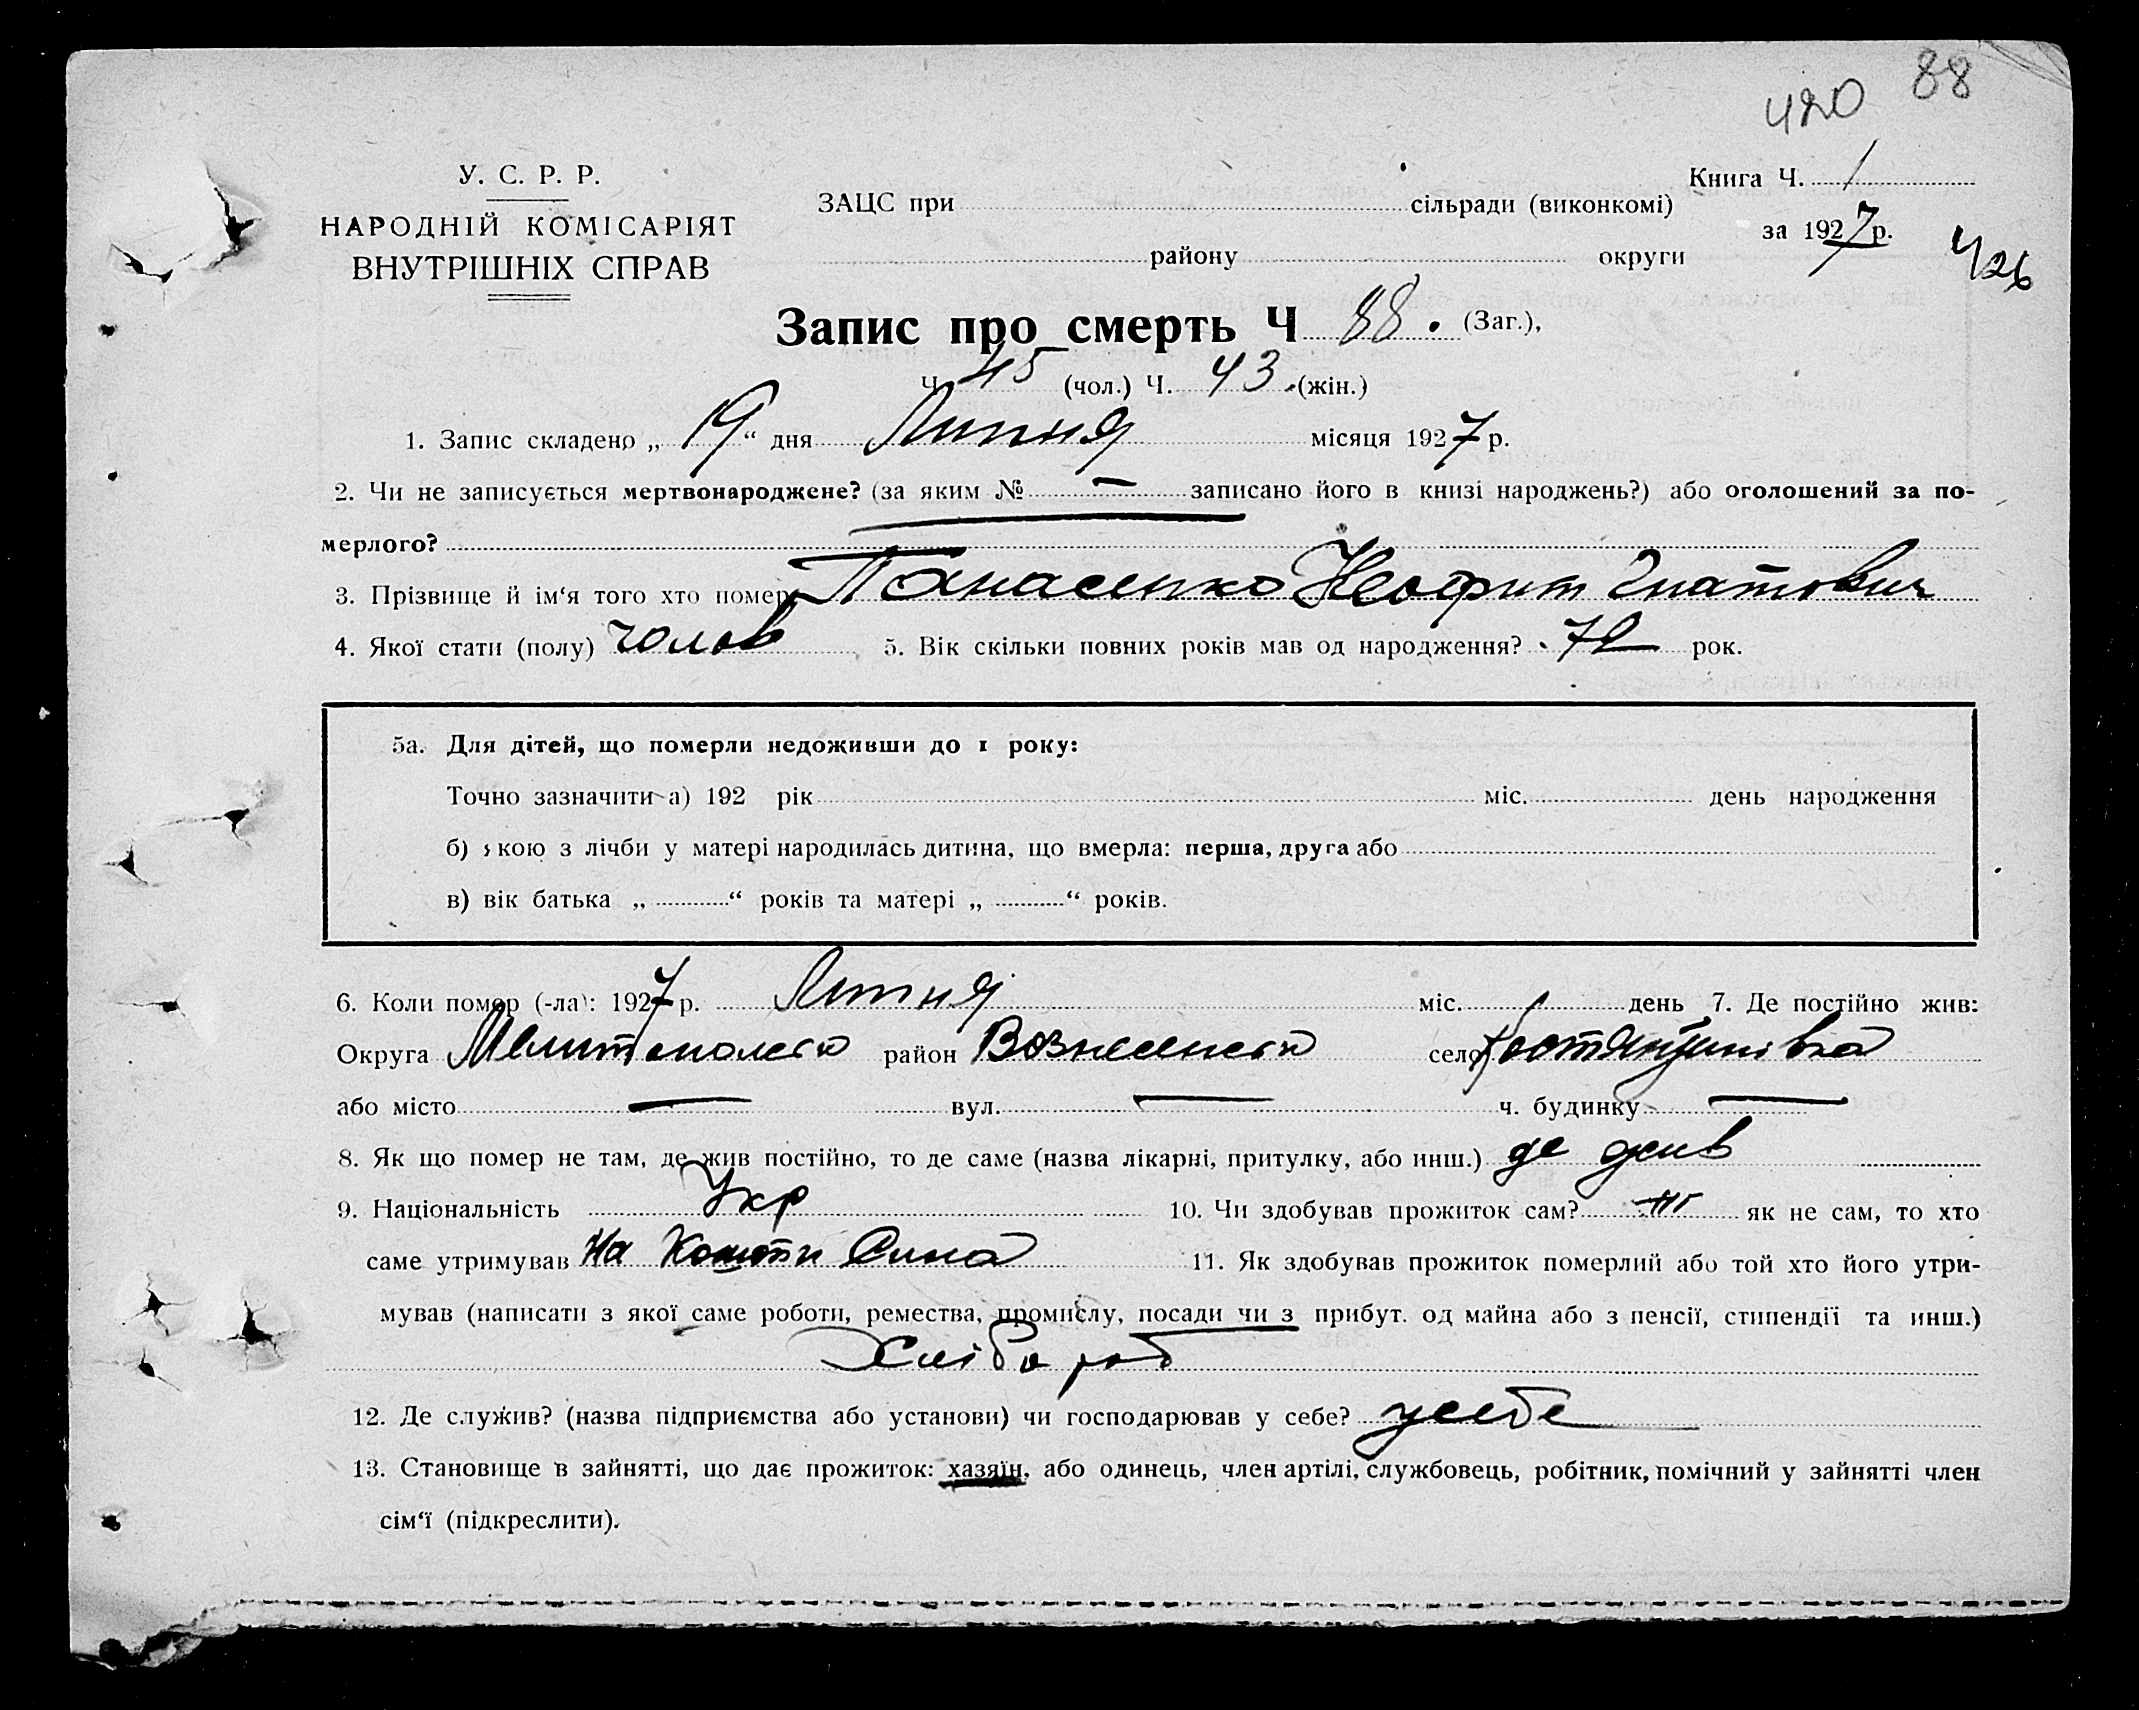 420 88
У. С. Р. Р.
НАРОДНІЙ КОМІСАРІЯТ
ВНУТРІШНІХ СПРАВ
ЗАЦС при сільради (виконкомі)
району округи
Книга Ч. 1
за 1927 р.
426
Запис про смерть Ч 88. (Заг.),
Ч 45 (чол.) Ч. 43 (жін.)
1. Запис складено „ 19 “ дня Липня місяця 1927 р.
2. Чи не записується мертвонароджене? (за яким № — записано його в книзі народжень?) або оголошений за по-
мерлого?
3. Прізвище й ім‘я того хто помер Панасенко Неофит Гнатович
4. Якої стати (полу) чолов 5. Вік скільки повних років мав од народження? 72 рок.
5а. Для дітей, що померли недоживши до 1 року:
Точно зазначити а) 192 рік міс. день народження
б) якою з лічби у матері народилась дитина, що вмерла: перша, друга або
в) вік батька „ “ років та матері „ “ років.
6. Коли помер (-ла): 1927 р. Липня міс. 1 день 7. Де постійно жив:
Округа район село Костянтинівка
або місто — вул. — ч. будинку —
8. Як що помер не там, де жив постійно, то де саме (назва лікарні, притулку, або инш.) де жив
9. Національність Укр 10. Чи здобував прожиток сам? як не сам, то хто
саме утримував На Кошти Сина 11. Як здобував прожиток померлий або той хто його утри-
мував (написати з якої саме роботи, ремества, промислу, посади чи з прибут. од майна або з пенсії, стипендії та инш.)
Хлібороб
12. Де служив? (назва підприємства або установи) чи господарював у себе? у себе
13. Становище в зайнятті, що дає прожиток: хазяїн, або одинець, член артілі, службовець, робітник, помічний у зайнятті член
сім‘ї (підкреслити).